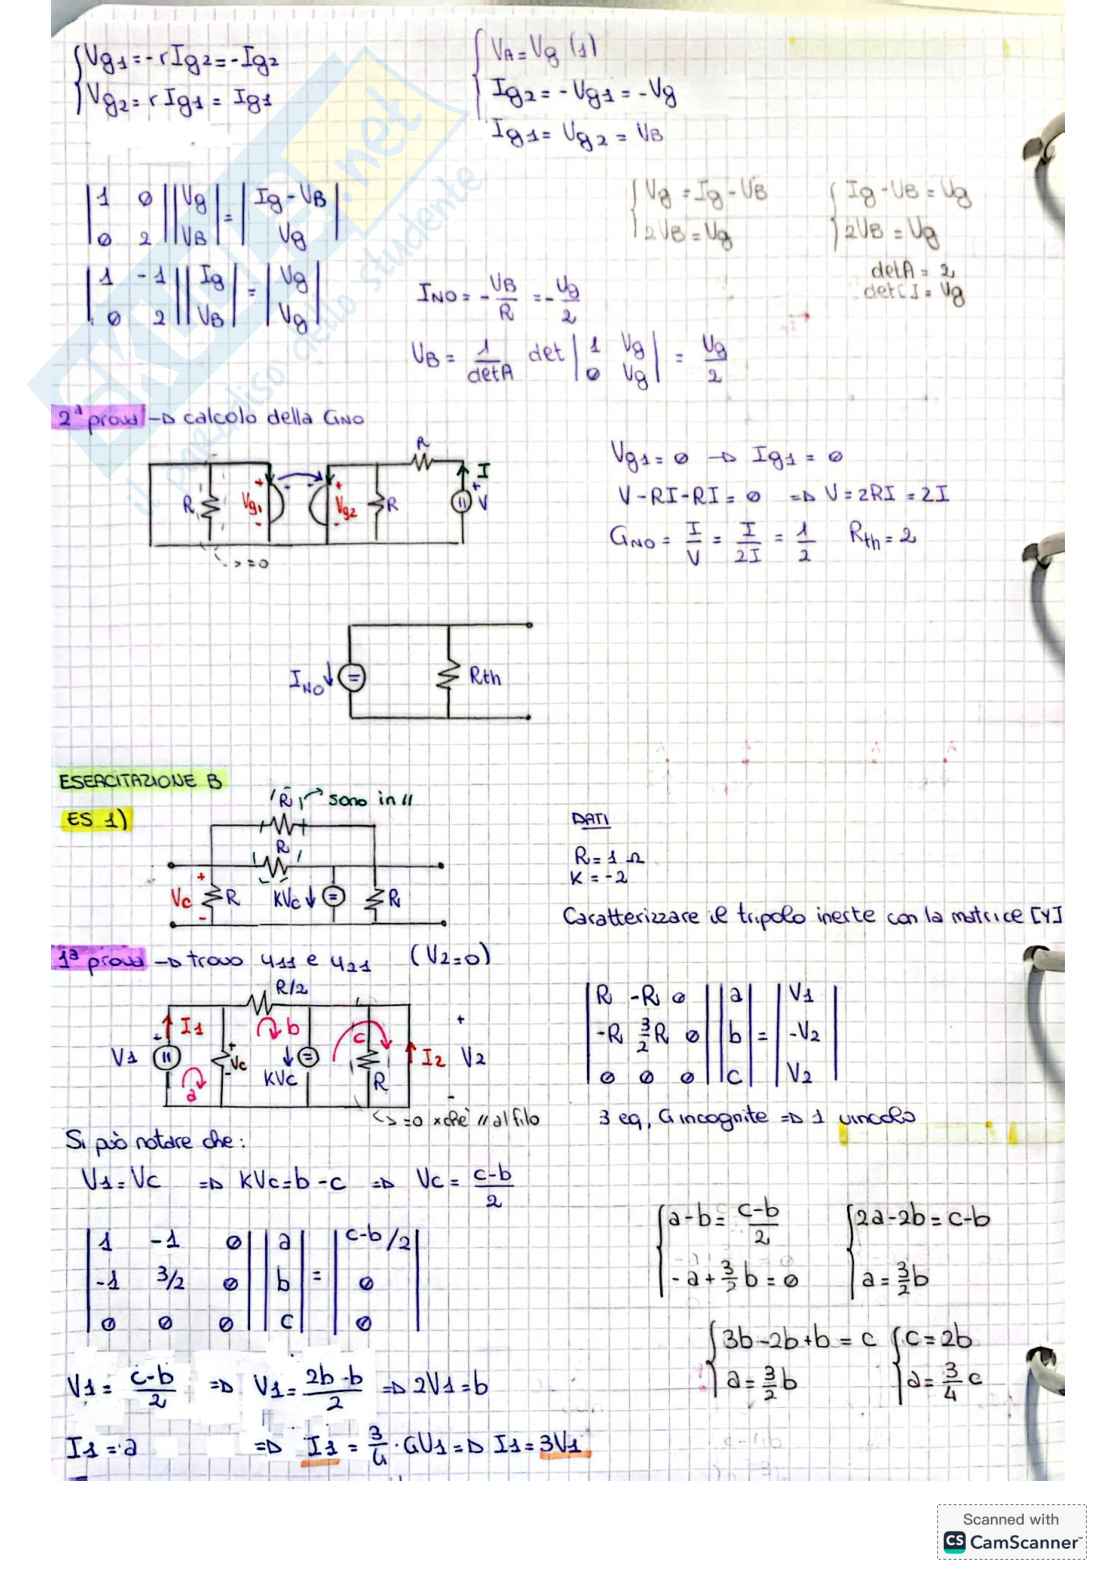 Vg1=-rIg2=-Ig2
Vg2=rIg1=Ig1
VA=Vg (1)
Ig2=-Vg1=-Vg
Ig1=Vg2=VB
|1 0| |Vg| = |Ig-VB|
|0 2| |VB| |Vg|
Vg=Ig-VB
2VB=Vg
Ig-VB=Vg
2VB=Vg
detA=2
det[]=Vg
|1 -1| |Ig| = |Vg|
|0 2| |VB| |Vg|
INO=-VB/R=-Vg/2
VB=1/detA det|1 Vg| = Vg/2
|0 Vg|
2ª prova → calcolo della GNO
R
I
R
Vg1
Vg2
R
V
↳=0
Vg1=0 → Ig1=0
V-RI-RI=0 ⇒ V=2RI=2I
GNO=I/V=I/2I=1/2 Rth=2
INO
Rth
ESERCITAZIONE B
ES 1)
R → sono in //
R
Vc
R
KVc
R
DATI
R=1Ω
K=-2
Caratterizzare il tripolo inerte con la matrice [Y]
1ª prova → trovo y11 e y21 (V2=0)
R/2
I1
b
c
V1
Vc
KVc
R
I2
V2
a
↳=0 xchè // al filo
|R -R 0| |a| |V1|
|-R 3/2R 0| |b| = |-V2|
|0 0 0| |c| |V2|
3 eq, 4 incognite ⇒ 1 vincolo
Si può notare che:
V1=Vc ⇒ KVc=b-c ⇒ Vc=c-b/2
|1 -1 0| |a| |c-b/2|
|-1 3/2 0| |b| = |0|
|0 0 0| |c| |0|
a-b=c-b/2
-a+3/2b=0
2a-2b=c-b
a=3/2b
3b-2b+b=c
a=3/2b
c=2b
a=3/4c
V1=c-b/2 ⇒ V1=2b-b/2 ⇒ 2V1=b
I1=a ⇒ I1=3/4·4V1 ⇒ I1=3V1
SKUOLA.net
il paradiso dello studente
Scanned with
CS CamScanner